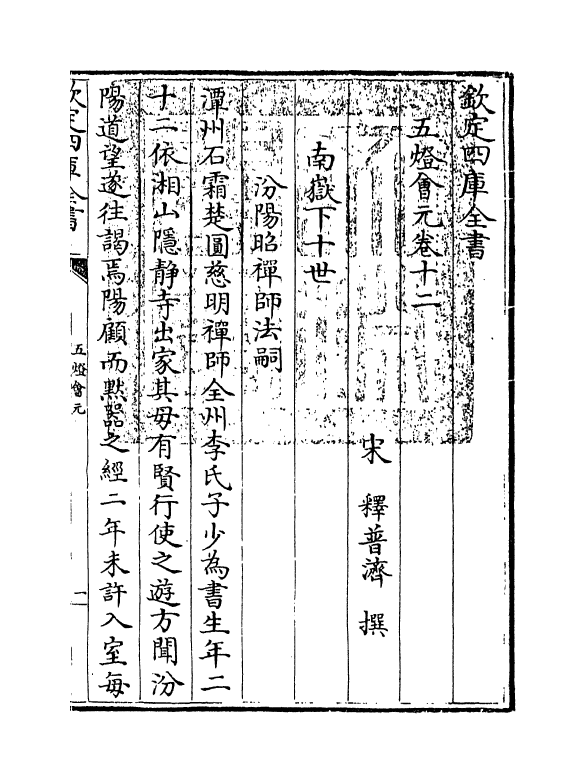 欽定四庫全書
五燈會元卷十二
宋 釋普濟 撰
南嶽下十世
汾陽昭禪師法嗣
潭州石霜楚圓慈明禪師全州李氏子少為書生年二
十二依湘山隱静寺出家其母有賢行使之遊方聞汾
陽道望遂往謁焉陽顧而黙器之經二年未許入室每
欽定四庫全書
五燈會元
二